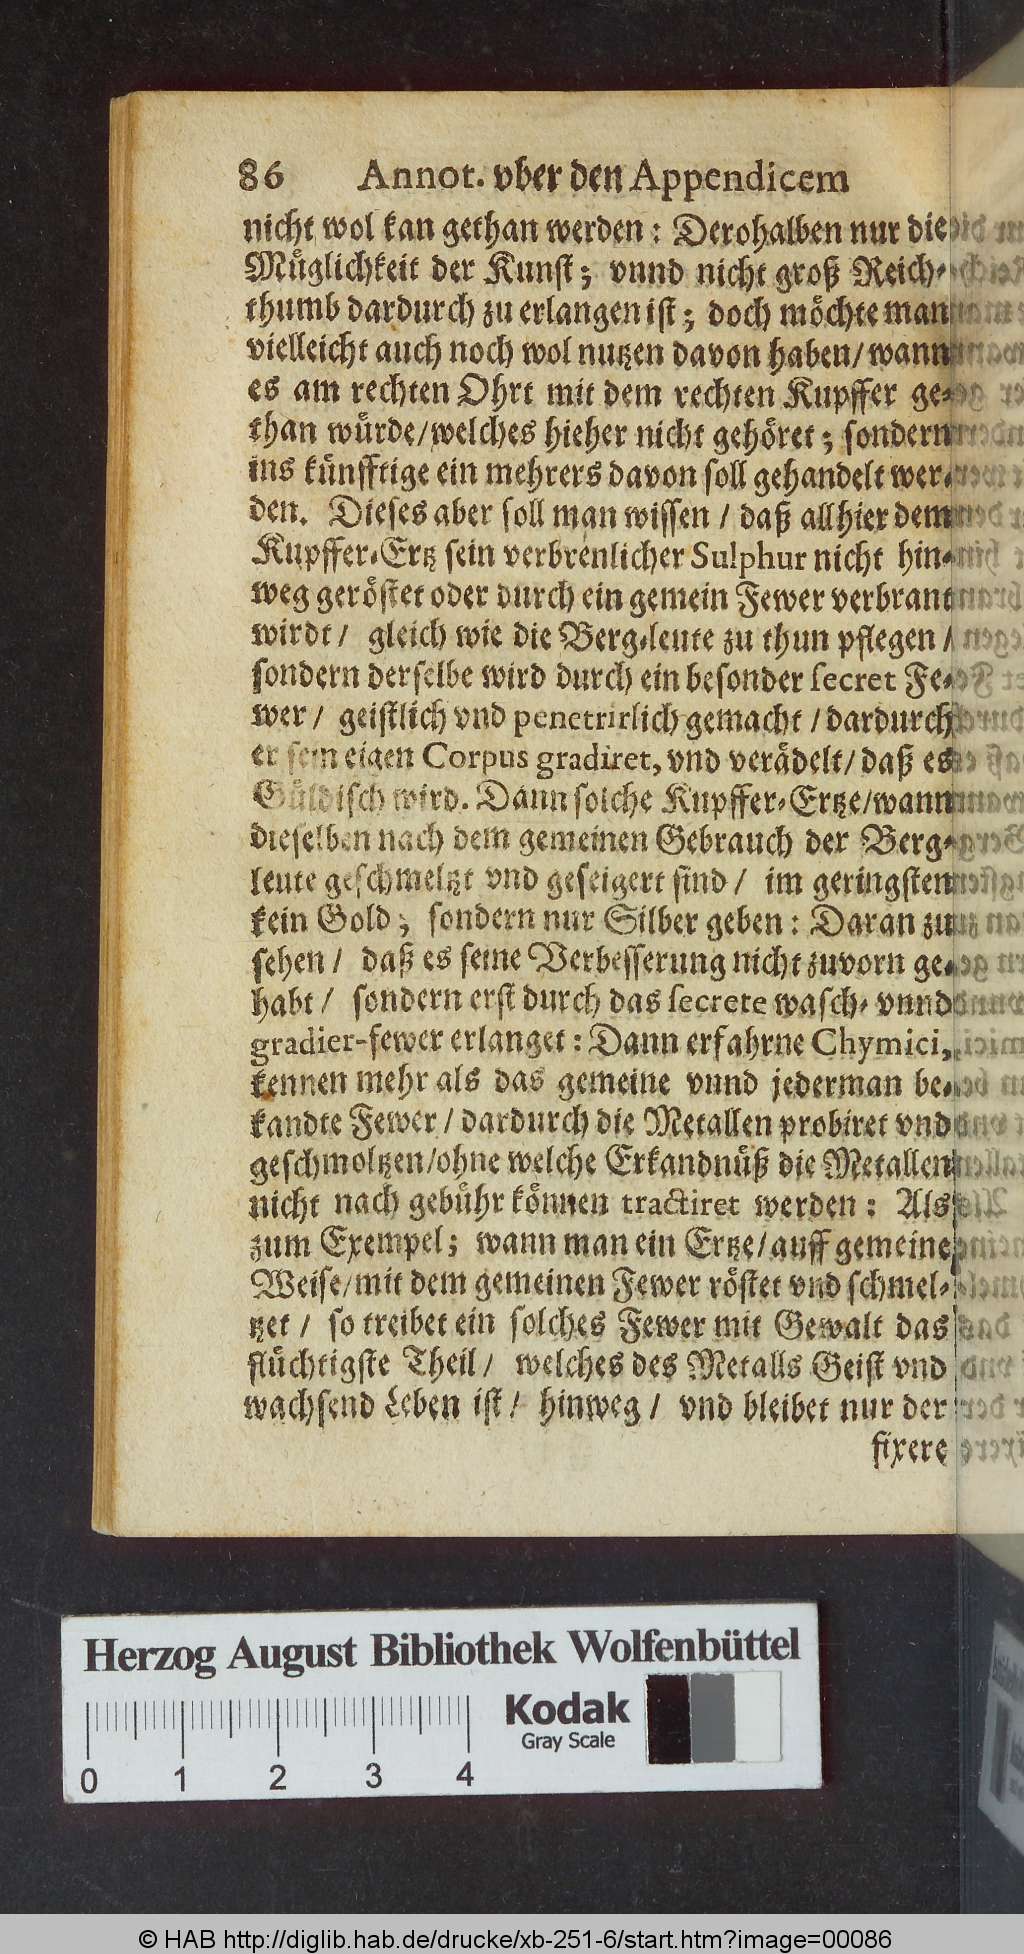 86 Annot. vber den Appendicem
nicht wol kan gethan werden: Derohalben nur die
Müglichkeit der Kunst; vnnd nicht groß Reich-
thumb dardurch zu erlangen ist; doch möchte man
vielleicht auch noch wol nutzen davon haben/ wann
es am rechten Ohrt mit dem rechten Kupffer ge-
than würde/ welches hieher nicht gehöret; sondern
ins künfftige ein mehrers davon soll gehandelt wer-
den. Dieses aber soll man wissen / daß allhier dem
Kupffer-Ertz sein verbrenlicher Sulphur nicht hin-
weg geröstet oder durch ein gemein Fewer verbrant
wirdt / gleich wie die Berg-leute zu thun pflegen /
sondern derselbe wird durch ein besonder secret Fe-
wer / geistlich vnd penetrirlich gemacht / dardurch
er sein eigen Corpus gradiret, vnd verädelt/ daß es
Güldisch wird. Dann solche Kupffer-Ertze/ wann
dieselben nach dem gemeinen Gebrauch der Berg-
leute geschmeltzt vnd geseigert sind / im geringsten
kein Gold; sondern nur Silber geben: Daran zu
sehen / daß es seine Verbesserung nicht zuvorn ge-
habt / sondern erst durch das secrete wasch- vnnd
gradier-fewer erlanget: Dann erfahrne Chymici,
kennen mehr als das gemeine vnnd jederman be-
kandte Fewer / dardurch die Metallen probiret vnd
geschmoltzen/ ohne welche Erkandnüß die Metallen
nicht nach gebühr können tractiret werden: Als
zum Exempel; wann man ein Ertze/ auff gemeine
Weise/ mit dem gemeinen Fewer röstet vnd schmel-
tzet / so treibet ein solches Fewer mit Gewalt das
flüchtigste Theil / welches des Metalls Geist vnd
wachsend Leben ist / hinweg / vnd bleibet nur der
fixere
Herzog August Bibliothek Wolfenbüttel
Kodak
Gray Scale
0 1 2 3 4
© HAB http://diglib.hab.de/drucke/xb-251-6/start.htm?image=00086